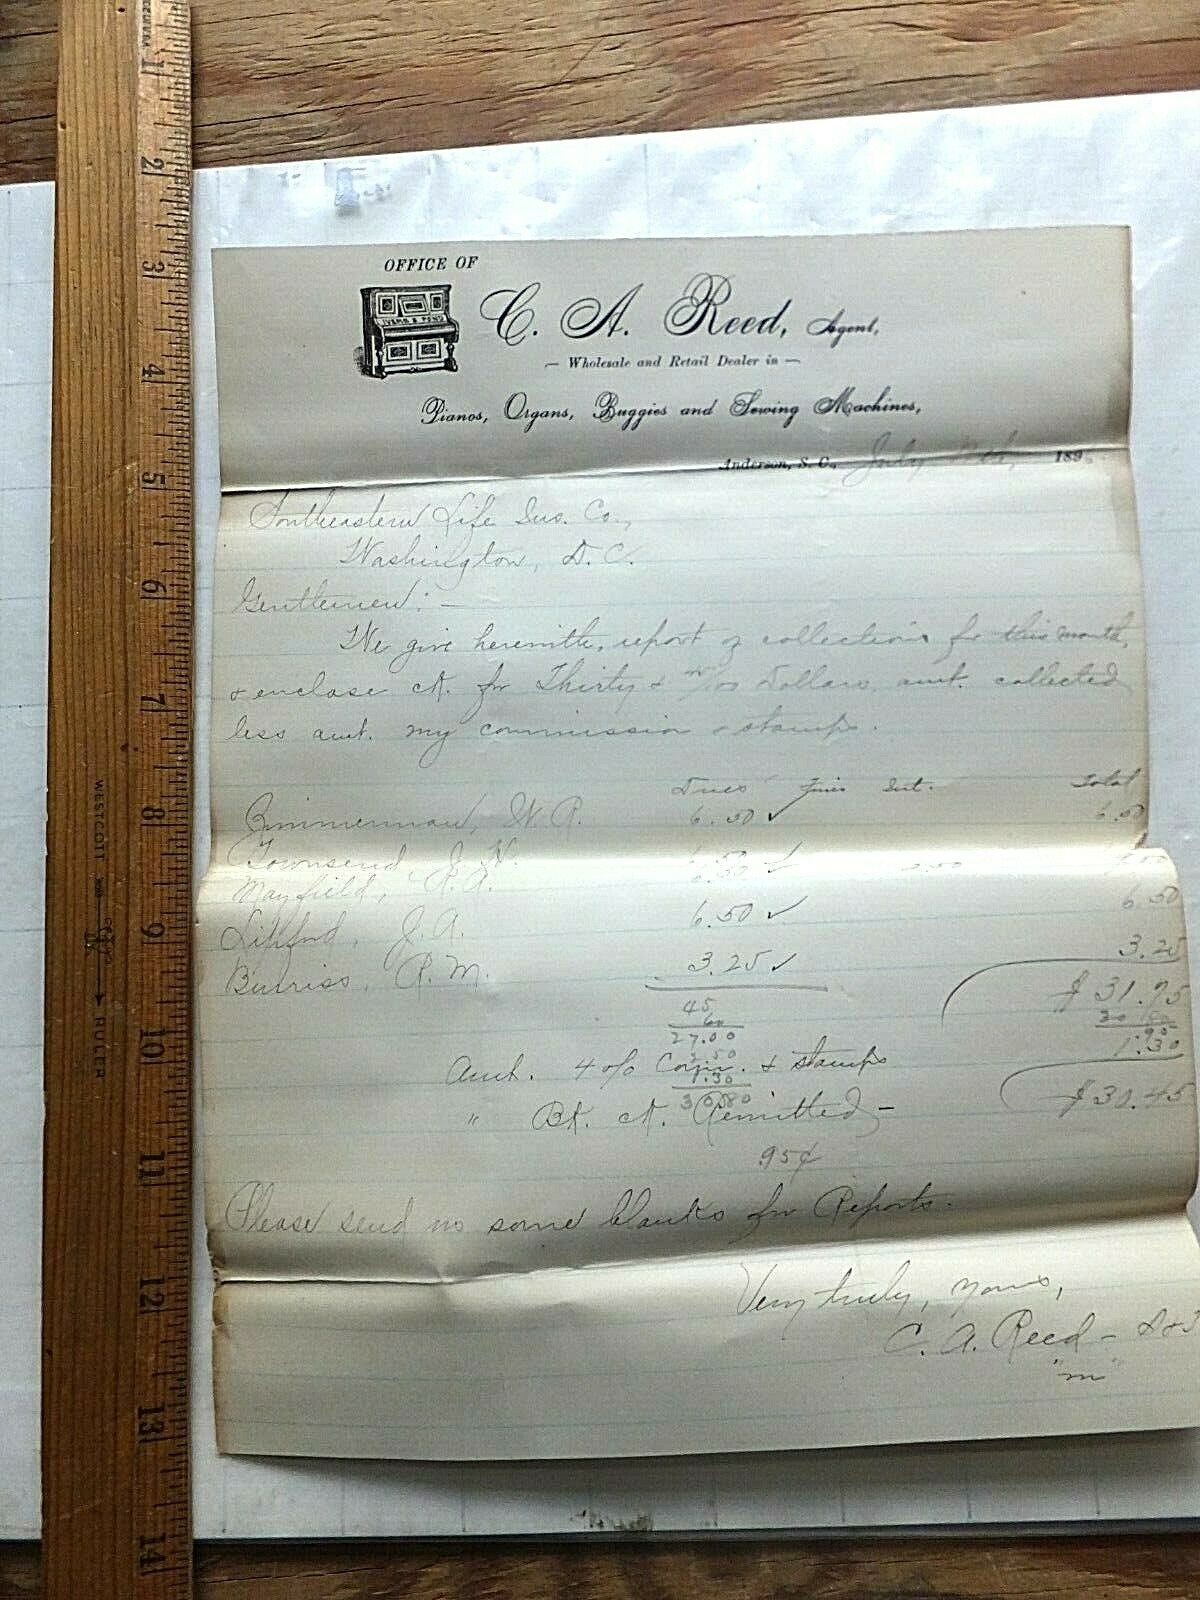 OFFICE OF
IVERS & POND
C. A. Reed, Agent,
— Wholesale and Retail Dealer in —
Pianos, Organs, Buggies and Sewing Machines,
Anderson, S. C., July 189
Southeastern Life Ins. Co.,
Washington, D. C.
Gentlemen: —
We give herewith, report of collections for this month,
& enclose ck. for Thirty & 45/100 Dollars, amt. collected
less amt. my commission & stamps.
Dues Fines Int. Total
Zimmerman, W. R. 6.50 ✓ 6.50
Townsend, J. H.
Mayfield, R. A. 2.50
Lipford, J. A. 6.50 ✓ 6.50
Burriss, R. M. 3.25 ✓ 3.25
45 $31.75
60 30 80
27.00 .95
2.50
Amt. 4 o/o Com. & stamps 1.30
1.30
30.80
" Bk. ck. Remitted — $30.45
.95¢
Please send us some blanks for Reports.
Very truly, yours,
C. A. Reed —
"m"
WESTCOTT
RULER
1
2
3
4
5
6
7
8
9
10
11
12
13
14